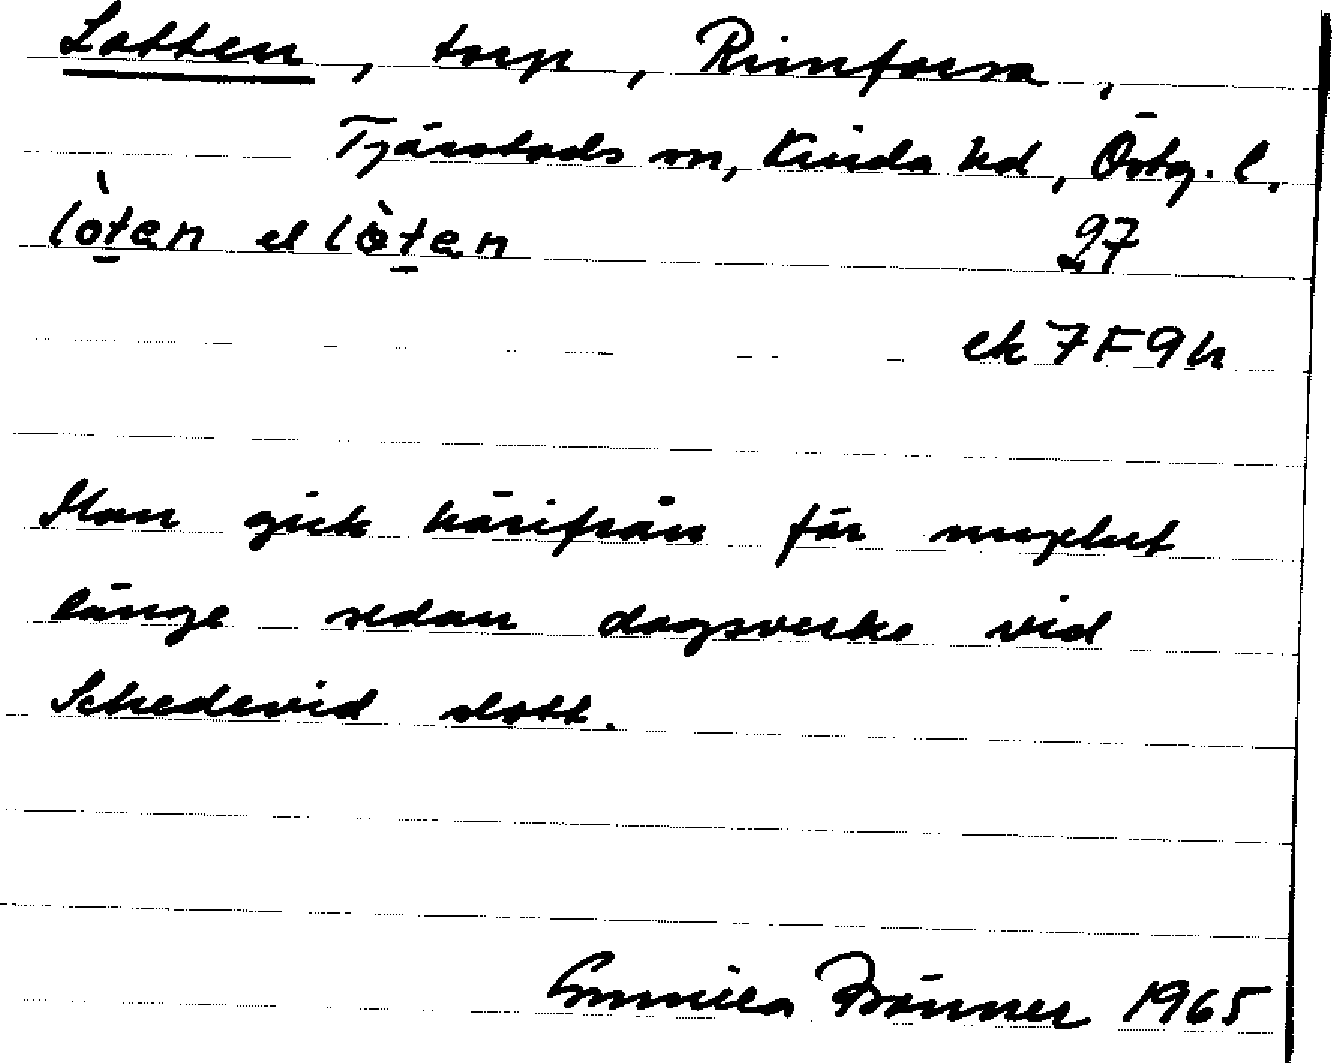 Lotten, torp, Rimforsa,
Tjärstads sn, Kinda hd, Östg. l.
lò̱ten el lò̱ten 27
ek 7F9h
Man gick härifrån för mycket
länge sedan dagsverke vid
Schedevid slott.
Gunilla Brönner 1965